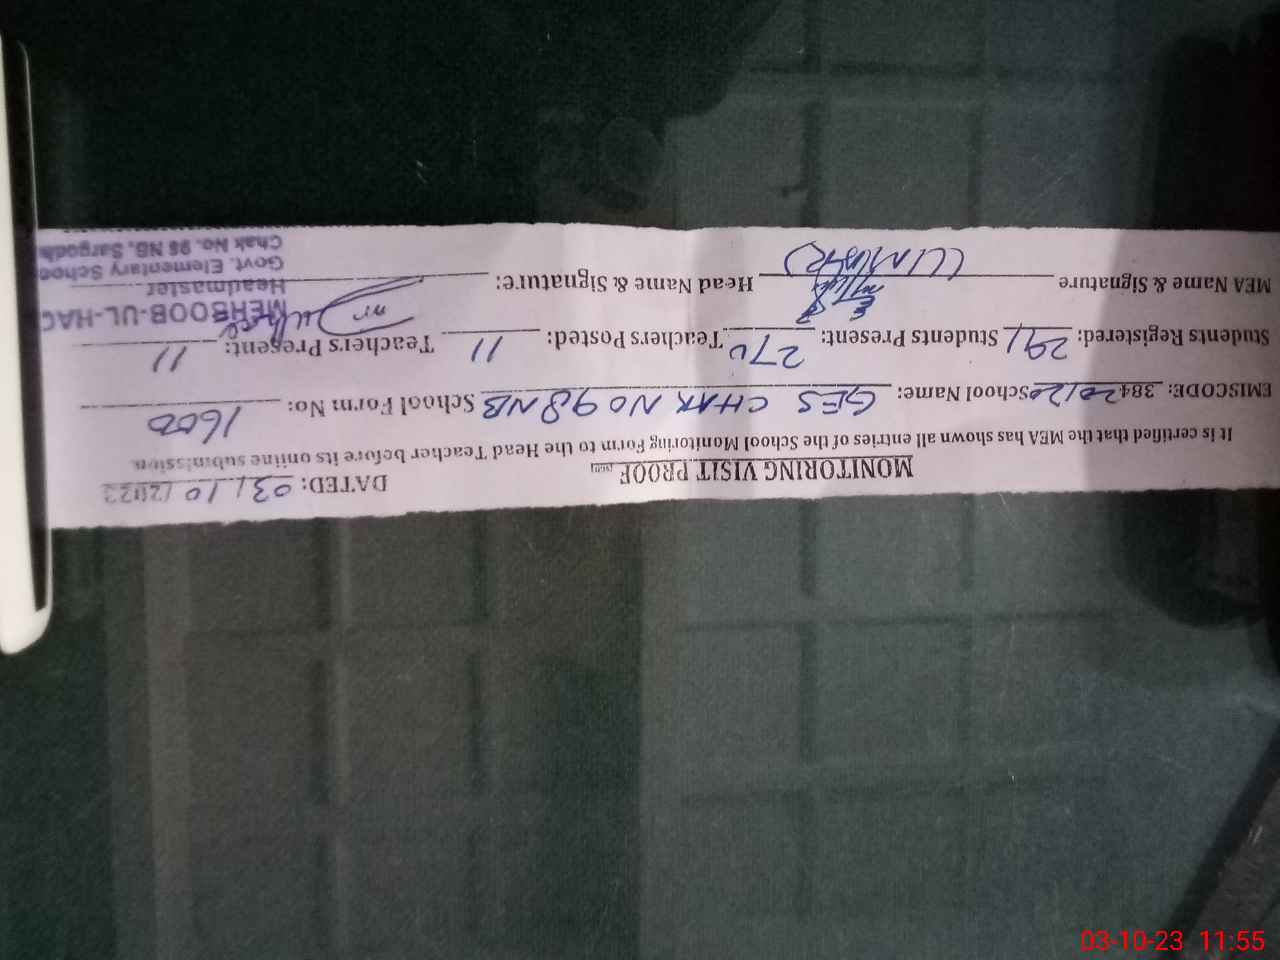 MONITORING VISIT PROOF
DATED: 03/10/2023
It is certified that the MEA has shown all entries of the School Monitoring Form to the Head Teacher before its online submission.
EMISCODE: 38420120 School Name: GES CHAK NO 98 NB School Form No: 1600
Students Registered: 291 Students Present: 270 Teachers Posted: 11 Teachers Present: 11
MEA Name & Signature Head Name & Signature:
MEHBOOB-UL-HAQ
Headmaster
Govt. Elementary School
Chak No. 98 NB, Sargodha
03-10-23 11:55